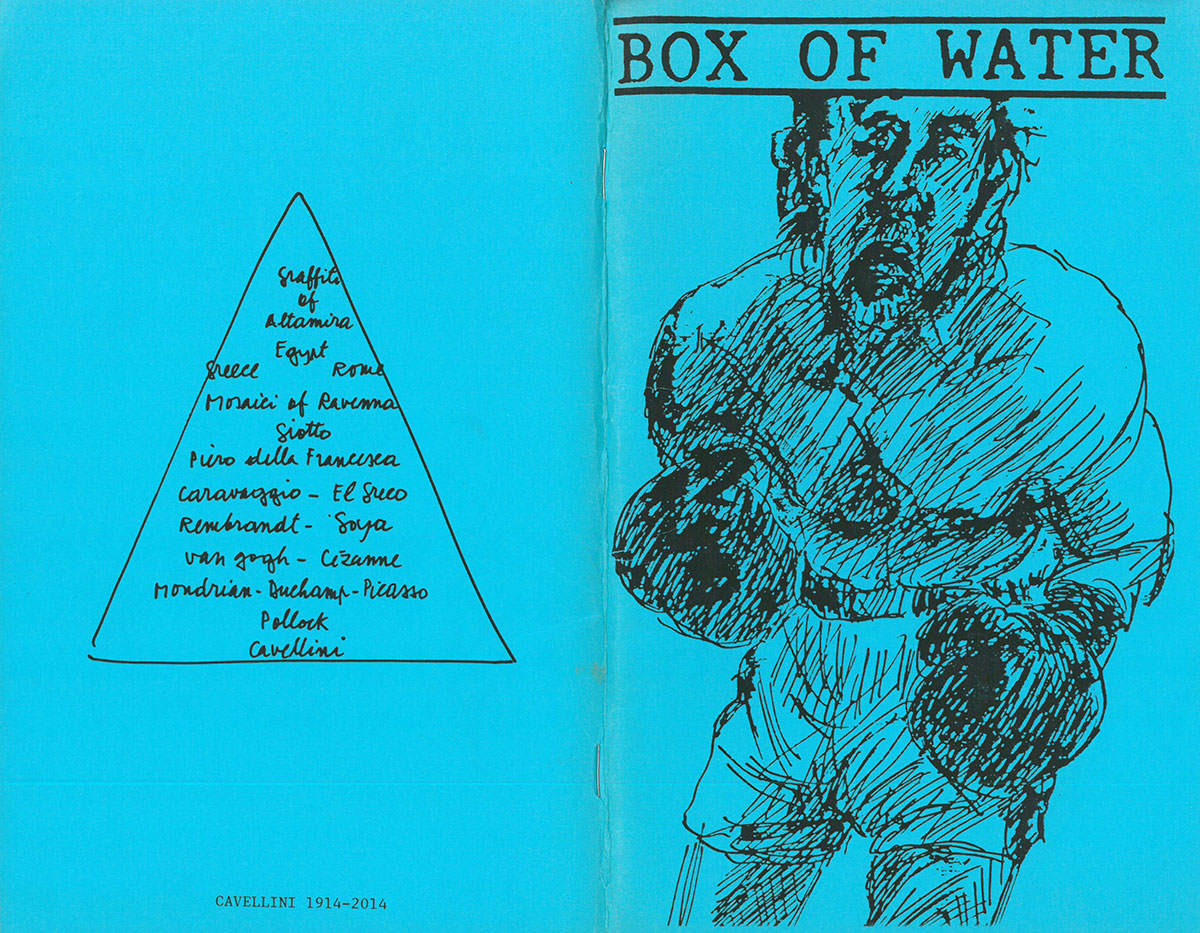 Graffiti
of
Altamira
Egypt
Greece Rome
Mosaici of Ravenna
Giotto
Piero della Francesca
Caravaggio - El Greco
Rembrandt - Goya
van gogh - Cézanne
Mondrian - Duchamp - Picasso
Pollock
Cavellini
CAVELLINI 1914-2014
BOX OF WATER